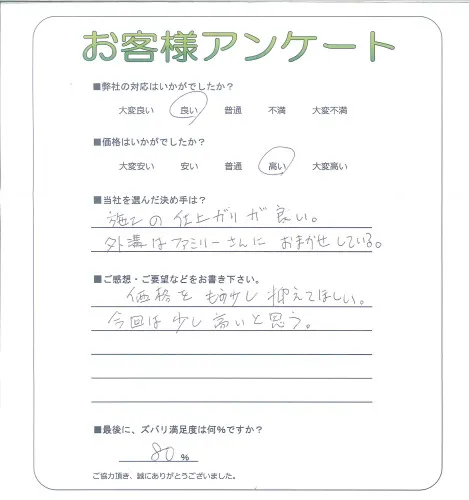 お客様アンケート
■弊社の対応はいかがでしたか？
大変良い 良い 普通 不満 大変不満
■価格はいかがでしたか？
大変安い 安い 普通 高い 大変高い
■当社を選んだ決め手は？
施工の仕上ガリが良い。
外溝はファミリーさんにおまかせしている。
■ご感想・ご要望などをお書き下さい。
価格をもう少し抑えてほしい。
今回は少し高いと思う。
■最後に、ズバリ満足度は何％ですか？
80 ％
ご協力頂き、誠にありがとうございました。